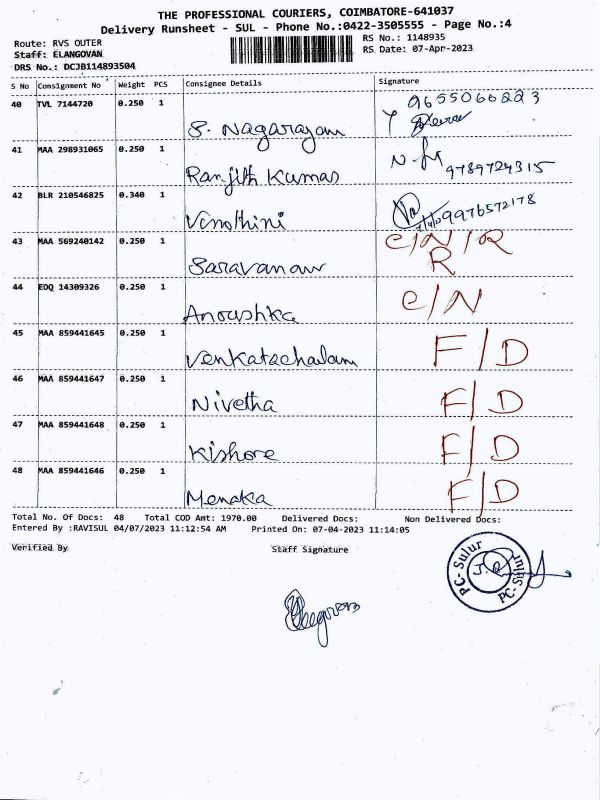 THE PROFESSIONAL COURIERS, COIMBATORE-641037
Delivery Runsheet - SUL - Phone No.:0422-3505555 - Page No.:4
Route: RVS OUTER RS No.: 1148935
Staff: ELANGOVAN RS Date: 07-Apr-2023
DRS No.: DCJB114893504
S No Consignment No Weight PCS Consignee Details Signature
40 TVL 7144720 0.250 1 S. Nagarajan 9655066223
41 MAA 298931065 0.250 1 Ranjith Kumar 9789724315
42 BLR 210546825 0.340 1 Vinothini 9976572178
43 MAA 569240142 0.250 1 Saravanan C/N/R
R
44 EDQ 14309326 0.250 1 Anoushka C/N
45 MAA 859441645 0.250 1 Venkatachalam F/D
46 MAA 859441647 0.250 1 Nivetha F/D
47 MAA 859441648 0.250 1 Kishore F/D
48 MAA 859441646 0.250 1 Menaka F/D
Total No. Of Docs: 48 Total COD Amt: 1970.00 Delivered Docs: Non Delivered Docs:
Entered By :RAVISUL 04/07/2023 11:12:54 AM Printed On: 07-04-2023 11:14:05
Verified By Staff Signature
PC-Sulur
PC-Sulur